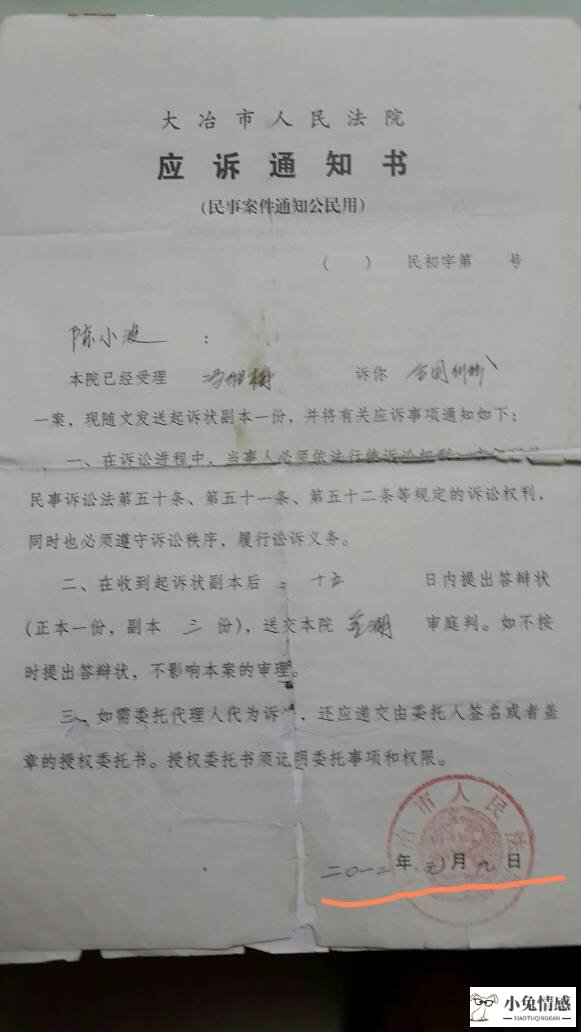 大冶市人民法院
应诉通知书
(民事案件通知公民用)
( ) 民初字第 号
陈小波 :
本院已经受理 诉你 合同纠纷
一案，现随文发送起诉状副本一份，并将有关应诉事项通知如下：
一、在诉讼进程中，当事人必须依法行使诉讼权利
民事诉讼法第五十条、第五十一条、第五十二条等规定的诉讼权利，
同时也必须遵守诉讼秩序，履行讼诉义务。
二、在收到起诉状副本后 十五 日内提出答辩状
(正本一份，副本 二 份)，送交本院 金湖 审庭判。如不按
时提出答辩状，不影响本案的审理。
三、如需委托代理人代为诉 ，还应递交由委托人签名或者盖
章的授权委托书。授权委托书须证明委托事项和权限。
市人民法
二〇一二年元月九日
小兔情感
XIAOTUQINGGAN